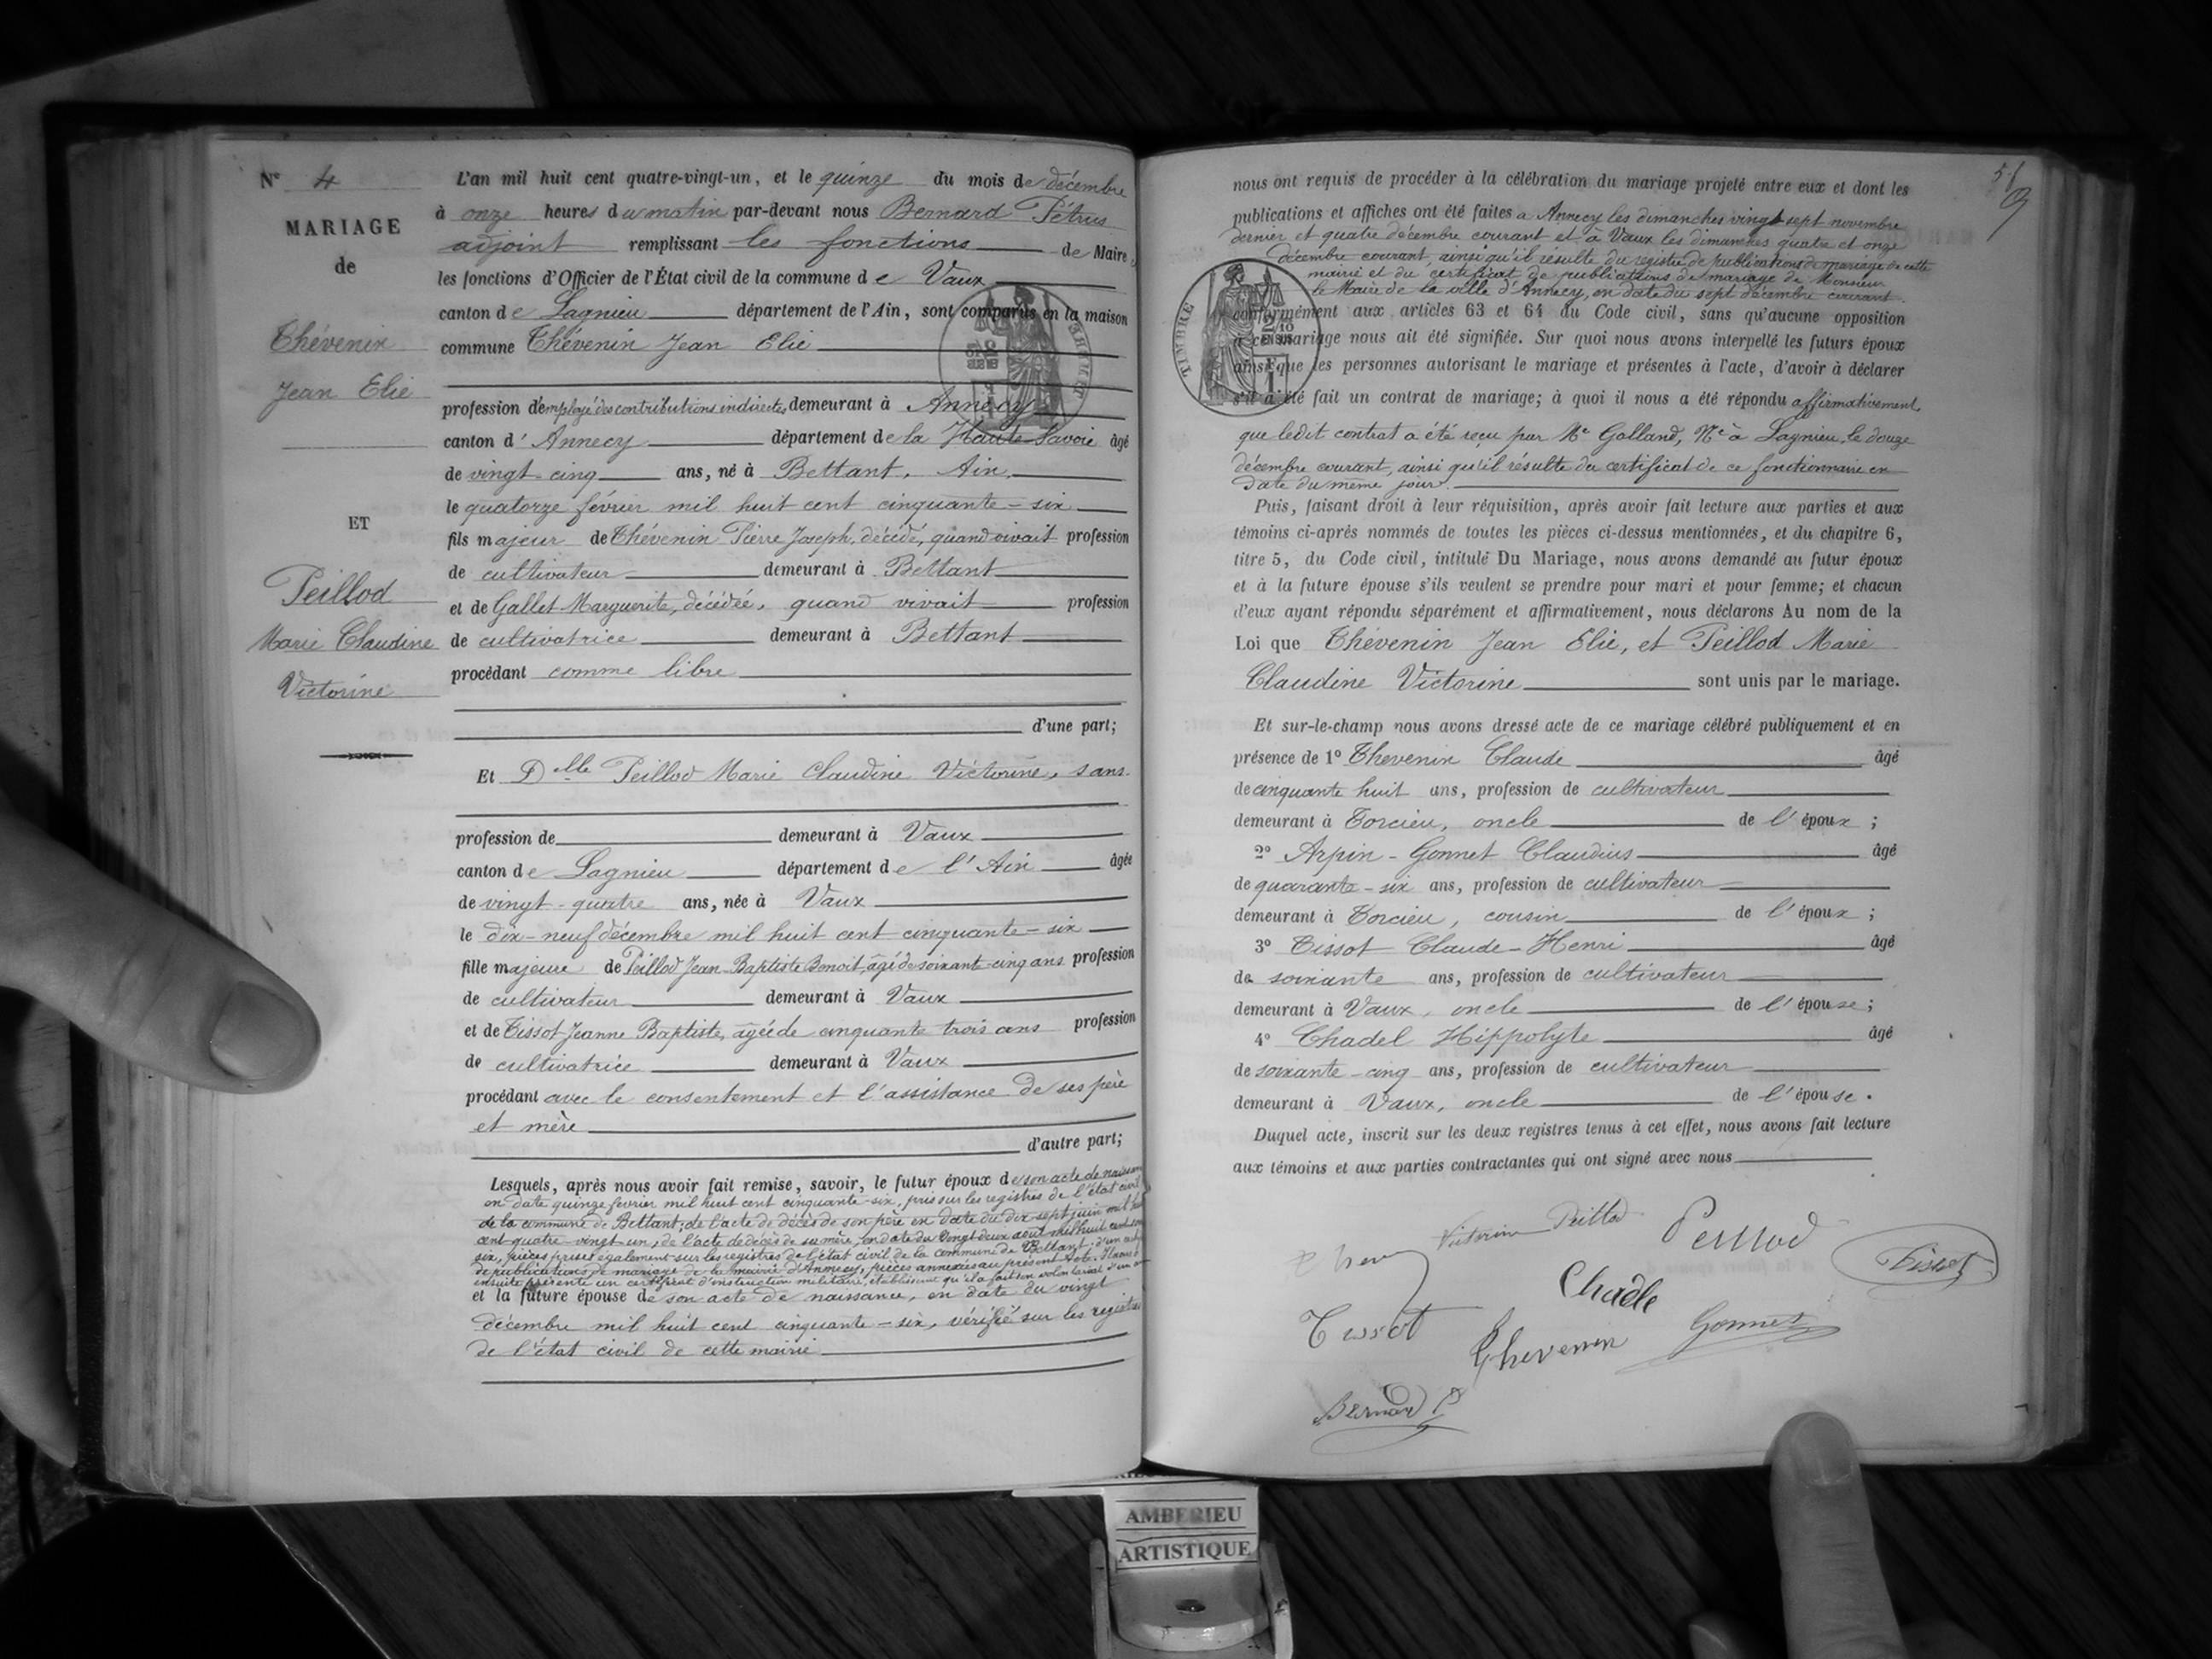 N° 4
MARIAGE
de
Thévenin
Jean Elie
ET
Peillod
Marie Claudine
Victorine
L'an mil huit cent quatre-vingt-un, et le quinze du mois de décembre
à onze heures du matin par-devant nous Bernard Pétrus
adjoint remplissant les fonctions de Maire,
les fonctions d'Officier de l'État civil de la commune de Vaux
canton de Lagnieu département de l'Ain, sont comparus en la maison
commune Thévenin Jean Elie
profession d'employé des contributions indirectes demeurant à Annecy
canton d'Annecy département de la Haute-Savoie âgé
de vingt cinq ans, né à Bettant, Ain,
le quatorze février mil huit cent cinquante-six
fils majeur de Thévenin Pierre Joseph, décédé, quand vivait profession
de cultivateur demeurant à Bettant
et de Gallet Marguerite, décédée, quand vivait profession
de cultivatrice demeurant à Bettant
procédant comme libre
d'une part;
Et Delle Peillod Marie Claudine Victorine, sans
profession de demeurant à Vaux
canton de Lagnieu département de l'Ain âgée
de vingt-quatre ans, née à Vaux
le dix-neuf décembre mil huit cent cinquante-six
fille majeure de Peillod Jean-Baptiste Benoit, âgé de soixante-cinq ans profession
de cultivateur demeurant à Vaux
et de Tissot Jeanne Baptiste, âgée de cinquante trois ans profession
de cultivatrice demeurant à Vaux
procédant avec le consentement et l'assistance de ses père
et mère
d'autre part;
Lesquels, après nous avoir fait remise, savoir, le futur époux de son acte de
en date quinze février mil huit cent cinquante-six, pris sur les registres de l'état civil
de la commune de Bettant; de l'acte de décès de son père en date du dix-sept juin mil
cent quatre-vingt un, de l'acte de décès de sa mère, en date du vingt deux août mil huit cent
six, pièces prises également sur les registres de l'état civil de la commune de Bettant, d'un
de publications de mariage de la mairie d'Annecy, pièces annexées au présent acte. Il nous a
ensuite présenté un certificat d'instruction militaire, établissant qu'il a fait son volontariat d'un
et la future épouse de son acte de naissance, en date du vingt
décembre mil huit cent cinquante-six, vérifié sur les registres
de l'état civil de cette mairie
51
nous ont requis de procéder à la célébration du mariage projeté entre eux et dont les
publications et affiches ont été faites à Annecy les dimanches vingt sept novembre
dernier et quatre décembre courant et à Vaux les dimanches quatre et onze
décembre courant, ainsi qu'il résulte du registre de publications de mariage de cette
mairie et du certificat de publications de mariage de Monsieur
le Maire de la ville d'Annecy, en date du sept décembre courant.
TIMBRE
conformément aux articles 63 et 64 du Code civil, sans qu'aucune opposition
à ce mariage nous ait été signifiée. Sur quoi nous avons interpellé les futurs époux
ainsi que les personnes autorisant le mariage et présentes à l'acte, d'avoir à déclarer
s'il a été fait un contrat de mariage; à quoi il nous a été répondu affirmativement,
que ledit contrat a été reçu par Me Golland, Nre à Lagnieu, le douze
décembre courant, ainsi qu'il résulte du certificat de ce fonctionnaire en
date du même jour.
Puis, faisant droit à leur réquisition, après avoir fait lecture aux parties et aux
témoins ci-après nommés de toutes les pièces ci-dessus mentionnées, et du chapitre 6,
titre 5, du Code civil, intitulé Du Mariage, nous avons demandé au futur époux
et à la future épouse s'ils veulent se prendre pour mari et pour femme; et chacun
d'eux ayant répondu séparément et affirmativement, nous déclarons Au nom de la
Loi que Thévenin Jean Elie, et Peillod Marie
Claudine Victorine sont unis par le mariage.
Et sur-le-champ nous avons dressé acte de ce mariage célébré publiquement et en
présence de 1° Thevenin Claude âgé
de cinquante huit ans, profession de cultivateur
demeurant à Torcieu, oncle de l'époux;
2° Arpin-Gonnet Claudius âgé
de quarante-six ans, profession de cultivateur
demeurant à Torcieu, cousin de l'époux;
3° Tissot Claude-Henri âgé
de soixante ans, profession de cultivateur
demeurant à Vaux, oncle de l'épouse;
4° Chadel Hippolyte âgé
de soixante-cinq ans, profession de cultivateur
demeurant à Vaux, oncle de l'épouse.
Duquel acte, inscrit sur les deux registres tenus à cet effet, nous avons fait lecture
aux témoins et aux parties contractantes qui ont signé avec nous
Victorine Peillod
Peillod
Tissot
Chadle
Tissot
Thevenin
Gonnet
Bernard P
AMBERIEU
ARTISTIQUE